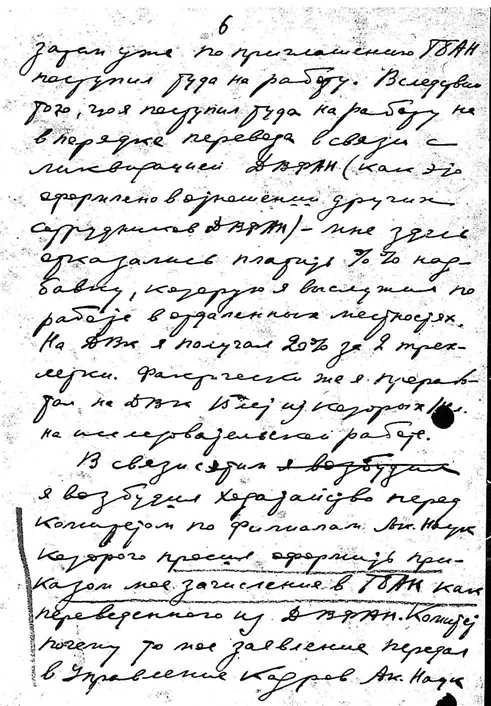 6
затем уже по приглашению ТБАН
поступил туда на работу. Вследствии
того, что я поступил туда на работу не
в порядке перевода в связи с
ликвидацией ДВФАН (как это
оформлено в отношении других
сотрудников ДВФАН) – мне здесь
отказались платить %% над-
бавку, которую я выслужил по
работе в отдаленных местностях.
На ДВк я получал 20% за 2 трех-
летки. Фактически же я прорабо-
тал на ДВк лет из которых
на исследовательской работе.
В связи с этим я возбудил
я возбудил ходатайство перед
Комитетом по Филиалам Ак. Наук
которого просил оформить при-
казом мое зачисление в ТБАН как
переведенного из ДВФАН. Комитет
почему то мое заявление передал
в Управление Кадров Ак. Наук